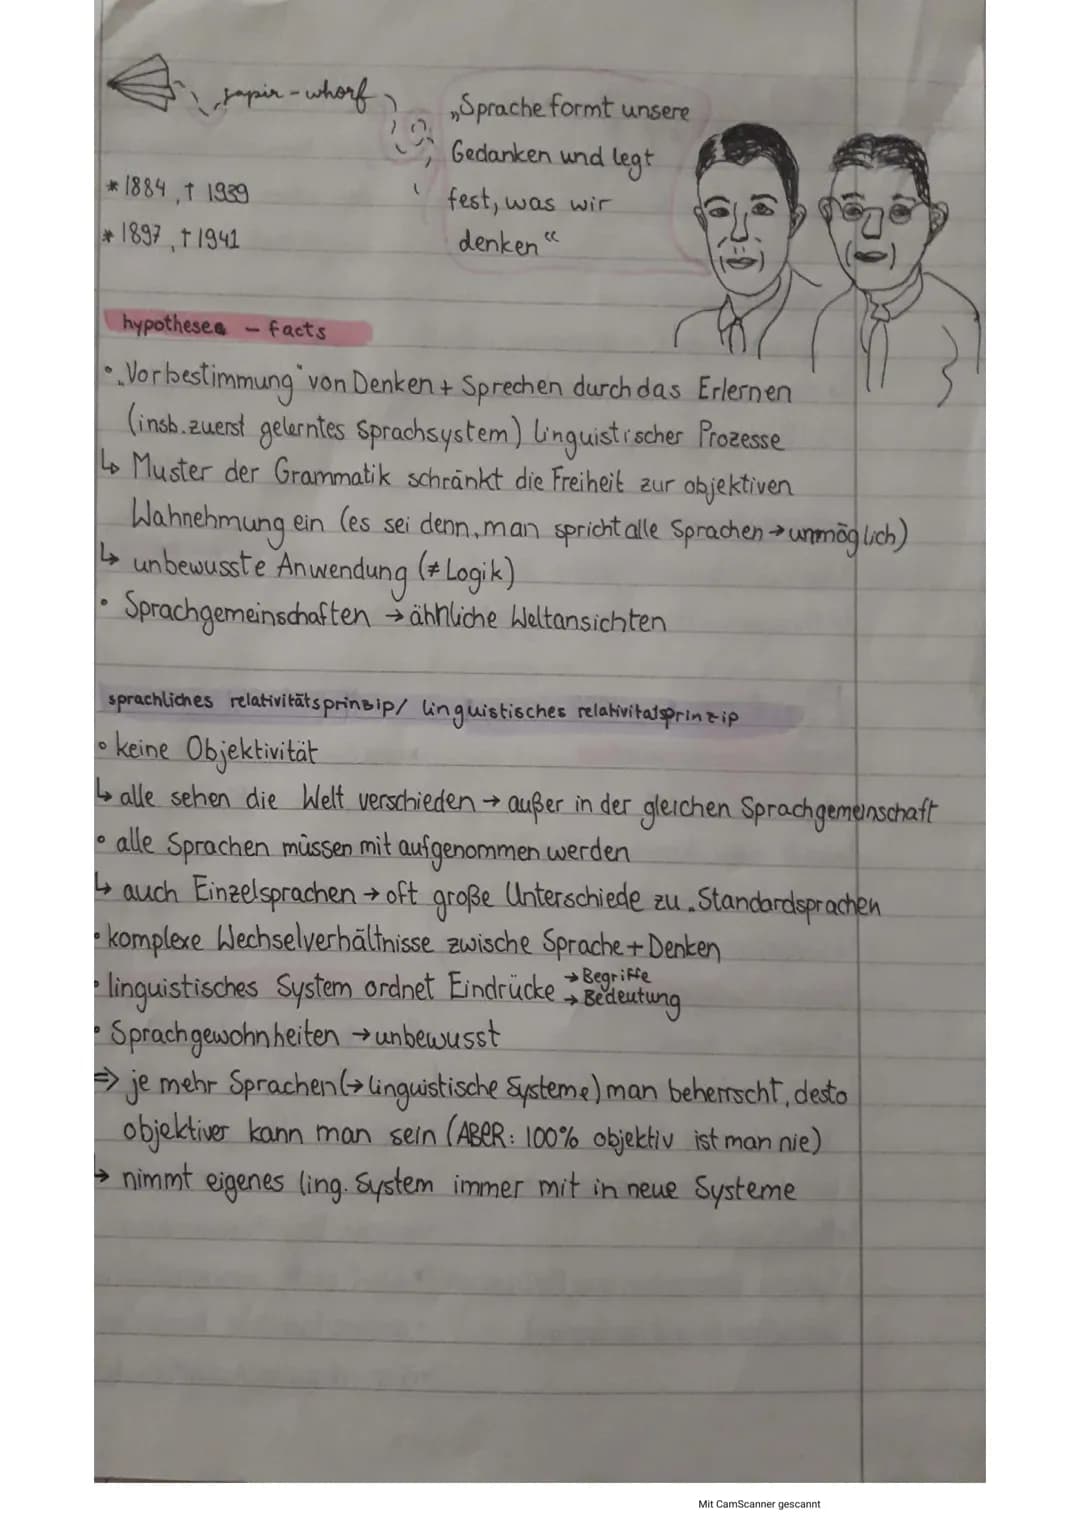 sapir-whorf
„Sprache formt unsere
Gedanken und legt
fest, was wir
denken“
* 1884, † 1939
* 1897, † 1941
hypothese - facts
• „Vorbestimmung" von Denken + Sprechen durch das Erlernen
(insb. zuerst gelerntes Sprachsystem) linguistischer Prozesse
↳ Muster der Grammatik schränkt die Freiheit zur objektiven
Wahnehmung ein (es sei denn, man spricht alle Sprachen → unmöglich)
↳ unbewusste Anwendung (≠ Logik)
• Sprachgemeinschaften → ähnliche Weltansichten
sprachliches relativitätsprinzip/ linguistisches relativitatsprinzip
• keine Objektivität
↳ alle sehen die Welt verschieden → außer in der gleichen Sprachgemeinschaft
• alle Sprachen müssen mit aufgenommen werden
↳ auch Einzelsprachen → oft große Unterschiede zu Standardsprachen
• komplexe Wechselverhältnisse zwische Sprache + Denken
• linguistisches System ordnet Eindrücke → Begriffe
→ Bedeutung
• Sprachgewohnheiten → unbewusst
⇒ je mehr Sprachen (→ linguistische Systeme) man beherrscht, desto
objektiver kann man sein (ABER: 100% objektiv ist man nie)
→ nimmt eigenes ling. System immer mit in neue Systeme
Mit CamScanner gescannt